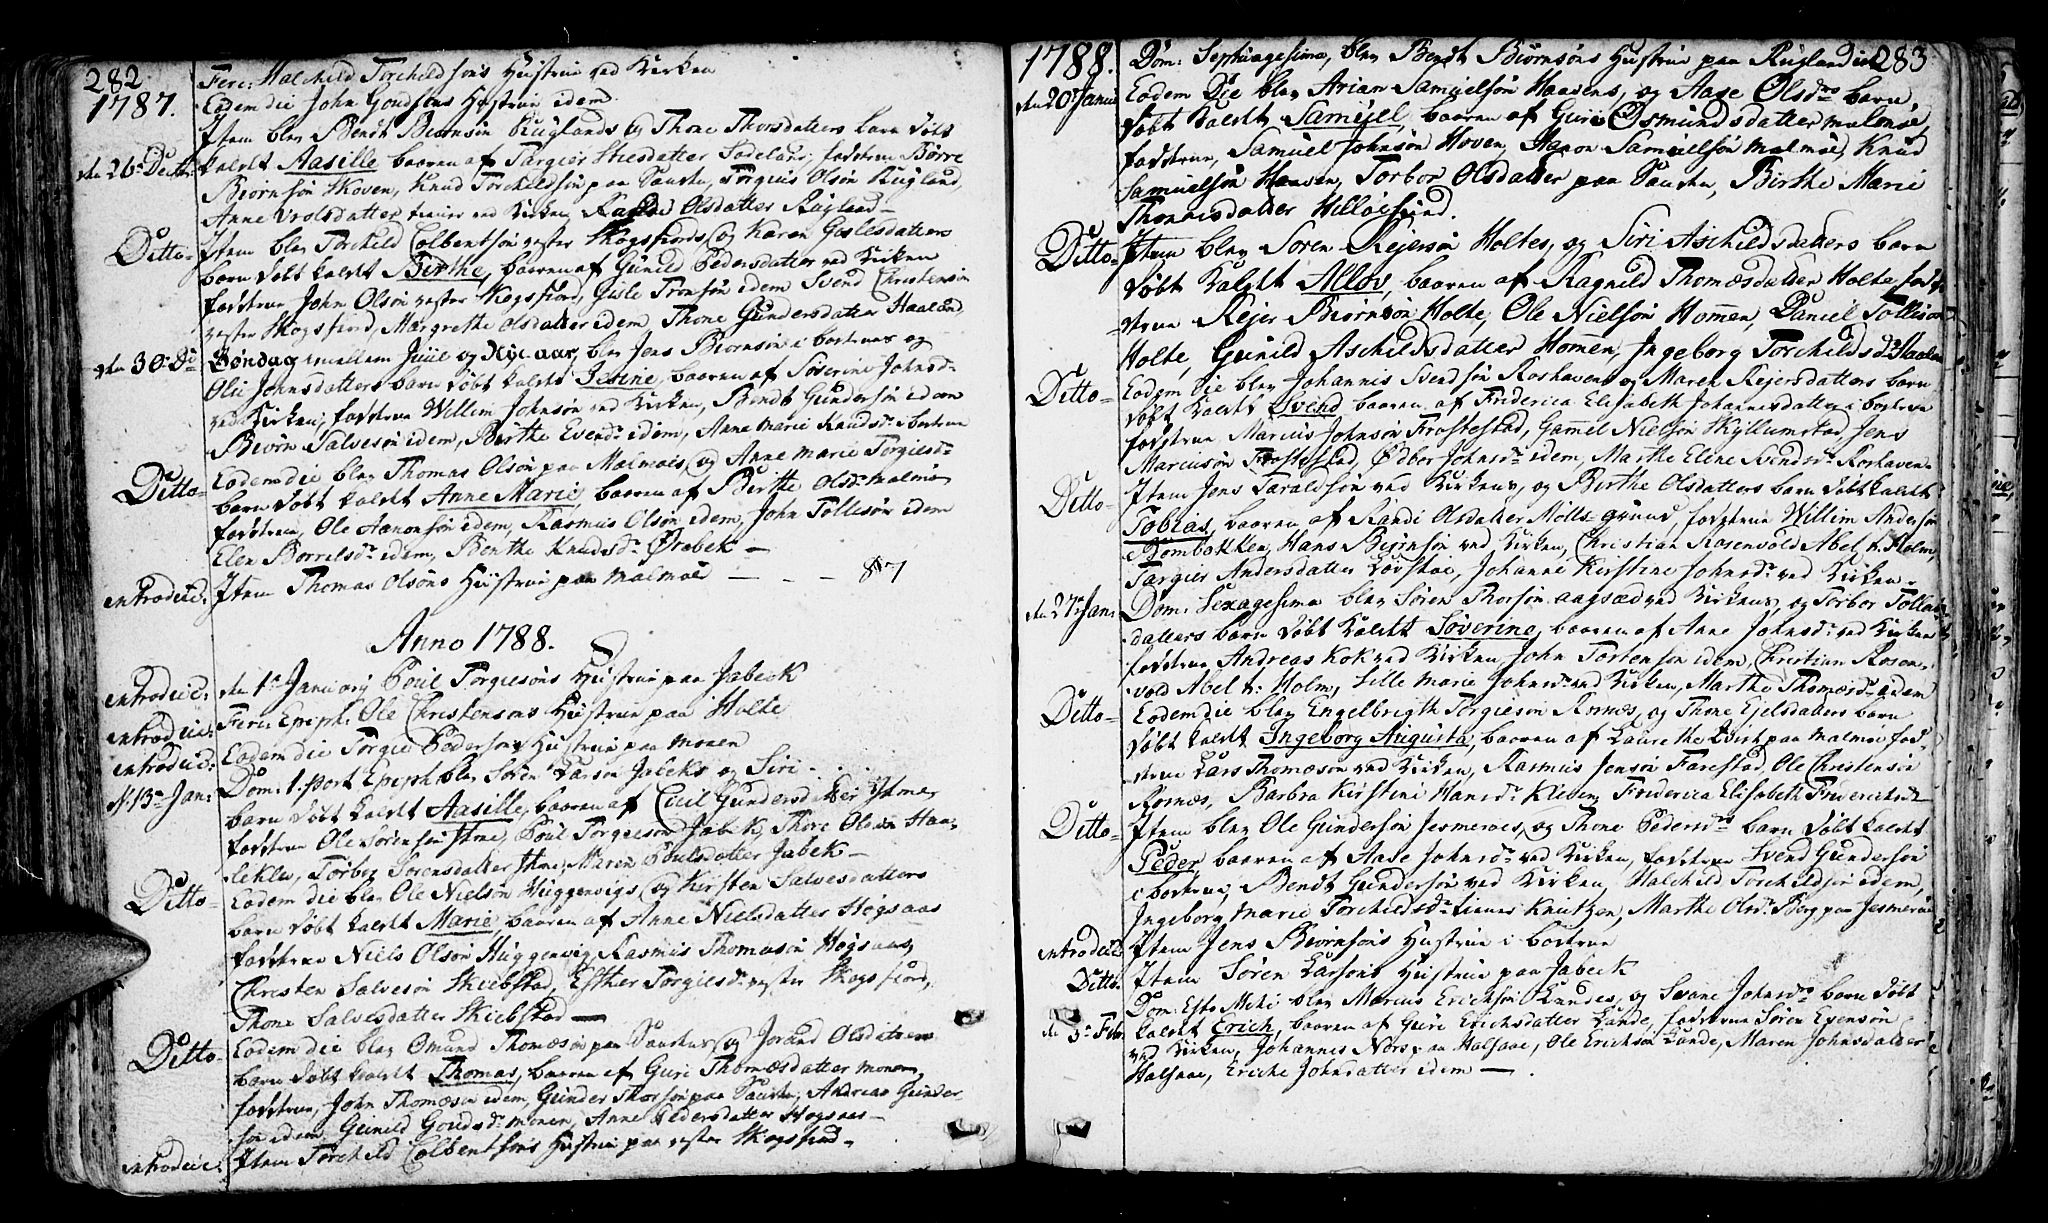 282.
1787.
Fer: Halchild Torchildsøns Hustrue ved Kirken
Eodem die John Goudsens Hustrue idem.
Item blev Bendt Biørnsøn Ruglands og Thone Thorsdatters barn døbt
den 26de Dec: kaldt Aasille baaren af Targier Stiesdatter Sodeland, faddrene Børre
Biørnsøn Skoven, Knud Torchildsøn paa Sausten, Torgius Olsøn Rugland,
Anne Urolsdatter tiener ved Kirken, Olsdatter Rugland
Ditto Item blev Torchild Colbentsøn vester Skogsfiords og Karen Gislesdatters
barn døbt kaldt Berthe, baaren af Gunild Pedersdatter ved Kirken
faddrene John Olsøn vester Skogsfiord, Gisle Tronsøn idem Svend Christensøn
vester Skogsfiord, Margrethe Olsdatter idem, Thone Gundersdatter Haaland,
den 30 Di Søndag imellem Juul og Nyt aar, blev Jens Biørnsøn i bortrue og
Oli Johnsdatters barn døbt kaldt Jesine, baaren af Søverine Johnsd:
ved Kirken; faddrene Willim Johnsøn ved Kirken, Bendt Gundersøn idem
Biørn Salvesøn idem, Birthe Evensd: idem, Anne Marie Knudsd: i bortrue
Ditto Eodem die blev Thomas Olsøn paa Malmøes, og Anne Marie Torgiesd:
barn døbt kaldt Anne Marie, baaren af Birthe Olsd: Malmø
faddrene, Ole Aanonsøn idem, Rasmus Olsøn idem, John Tollisøn idem
Elen Borrelsd: idem, Benthe Knudsd: Ørebek
introduc: Item Thomas Olsøns Hustrue paa Malmøe 87
Anno 1788.
introduc: den 1te January Poul Torgiesøns Hustrue paa Jabeck
introduc: Feri: Epiph: Ole Christensøns Hustrue paa Holte
introduc: Eodem die Torgie Pedersøns Hustrue paa Monen
d. 13de Jan: Dom: 1. post Epiph: blev Søren Larsøn Jabeks og Siri
barn døbt kaldt Aasille, baaren af Cicil Gundersdatter Ihme
faddrene Ole Sørensøn Ihme, Poul Torgiesøn Jabek, Thore Olsøn Haa-
leklev, Torber Sørensdatter Ihme, Maren Poulsdatter Jabek
Ditto Eodem die blev Ole Nielsøn Huggenvigs og Kirsten Salvesdatters
barn døbt kaldt Marie, baaren af Anne Nielsdatter Høgsaas
faddrene Niels Olsøn Huggenvig, Rasmus Thomæsøn Høgsaas,
Christen Salvesøn Skiebstad, Esther Torgiesd: vester Skogsfiord,
Thone Salvesdatter Skiebstad
Ditto Eodem die blev Omund Thomæsøn paa Saustens og Jorand Olsdatters
barn døbt kaldt Thomas, baaren af Guri Thomæsdatter Monen,
faddrene, John Thomæsøn idem, Gunder Thorsøn paa Sausten, Andreas Gunder
søn idem Gunild Goudsd: Monen, Anne Pedersdatter Høgsaas
introduc: Item Torchild Colbentsøns Hustrue paa vester Skogsfiord
1788.
283
Dom: Septuagesima, blev Bendt Biørnsøns Hustrue paa Rugland
den 20de Janu: Eodem Die blev Arian Samuelsøn Haavens, og Aase Olsd: barn,
døbt kaldt Samuel, baaren af Guri Osmundsdatter Malmøe,
faddrene, Samuel Johnsøn Hoven, Haaon Samuelsøn Malmøe, Knud
Samuelsøn Haaven, Torbor Olsdatter paa Sausten, Birthe Marie
Thomæsdatter Hilløesund.
Ditto Item blev Søren Rejersøn Holtes, og Siri Aschildsdatters barn
døbt kaldt Allov, baaren af Ragnild Thomæsdatter Holte, fad-
drene Rejer Biørnsøn Holte, Ole Nielsøn Homen, Daniel Tollisøn
Holte, Gunild Aschildsdatter Homen, Ingeborg Torchildsd: Haaland
Ditto Eodem die blev Johannis Svendsøn Roshavens og Maren Rejersdatters barn
døbt kaldt Svend baaren af Friderica Elisabeth Johannesdatter i bortrue
faddrene Marcius Johnsøn Frøstestad, Gamel Nielsøn Skyllumstad, Jens
Marcusøn Frøstestad, Ødbor Johnsd: idem, Marthe Elene Svendsd: Roshaven
Ditto Item Jens Taraldsøn ved Kirkens, og Birthe Olsdatters barn døbt kaldt
Tobias, baaren af Randi Olsdatter Møllsgrund, faddrene Willim Andersøn
i Dombakken, Hans Beiørnsøn ved Kirken, Christian Rosenvold Abel v: Holm,
Targier Andersdatter Løvstøe, Johanne Kirstine Johnsd: ved Kirken.
den 27de Jan: Dom: Sexagesima blev Søren Thorsøn Aagsæd ved Kirkens, og Torbor Tollis
datters barn døbt kaldt Søverine, baaren af Anne Johnsd: ved Kirken
faddrene, Andreas Kok ved Kirken John Torstensøn idem, Christian Rosen-
vold Abel v: Holm, Lille Marie Johnsd: ved Kirken, Marthe Thomæsd: idem
Ditto Eodem die blev Engelbrigth Torgiesøn Rosnæs, og Thone Ejelsdatters barn
døbt kaldt Ingeborg Augusta, baaren af Laurethe Qvist paa Malmøe fad-
drene Lars Thomæsøn ved Kirken, Rasmus Jensøn Farestad, Ole Christensøn
Rosnæs, Barbra Kirstine Hansd: Kleven, Friderica Elisabeth Friderichsd
Ditto Item blev Ole Gundersøn Jesmerøes, og Thone Pedersd: barn døbt kaldt
Peder, baaren af Aase Johnsd: ved Kirken, faddrene Svend Gundersøn
i bortrue, Bendt Gundersøn ved Kirken, Halchild Torchildsøn idem,
Ingeborg Marie Torchildsd: tiener Knutzen, Marthe Olsd: Berg paa Jesmerøe
introduc: Item Jens Biørnsøns Hustrue i bortrue
Ditto Item Søren Larsøns Hustrue paa Jabeck
Dom: Esto Mihi blev Marius Erichsøn Lundes, og Svane Johnsd: barn døbt
de 3de Feb: kaldt Erich, baaren af Guri Erichsdatter Lunde, faddrene Søren Evensøn
ved Kirken, Johannes Nørs paa Halsaae, Ole Erichsøn Lunde, Maren Johnsdatter
Halsaae, Eriche Johnsdatter idem